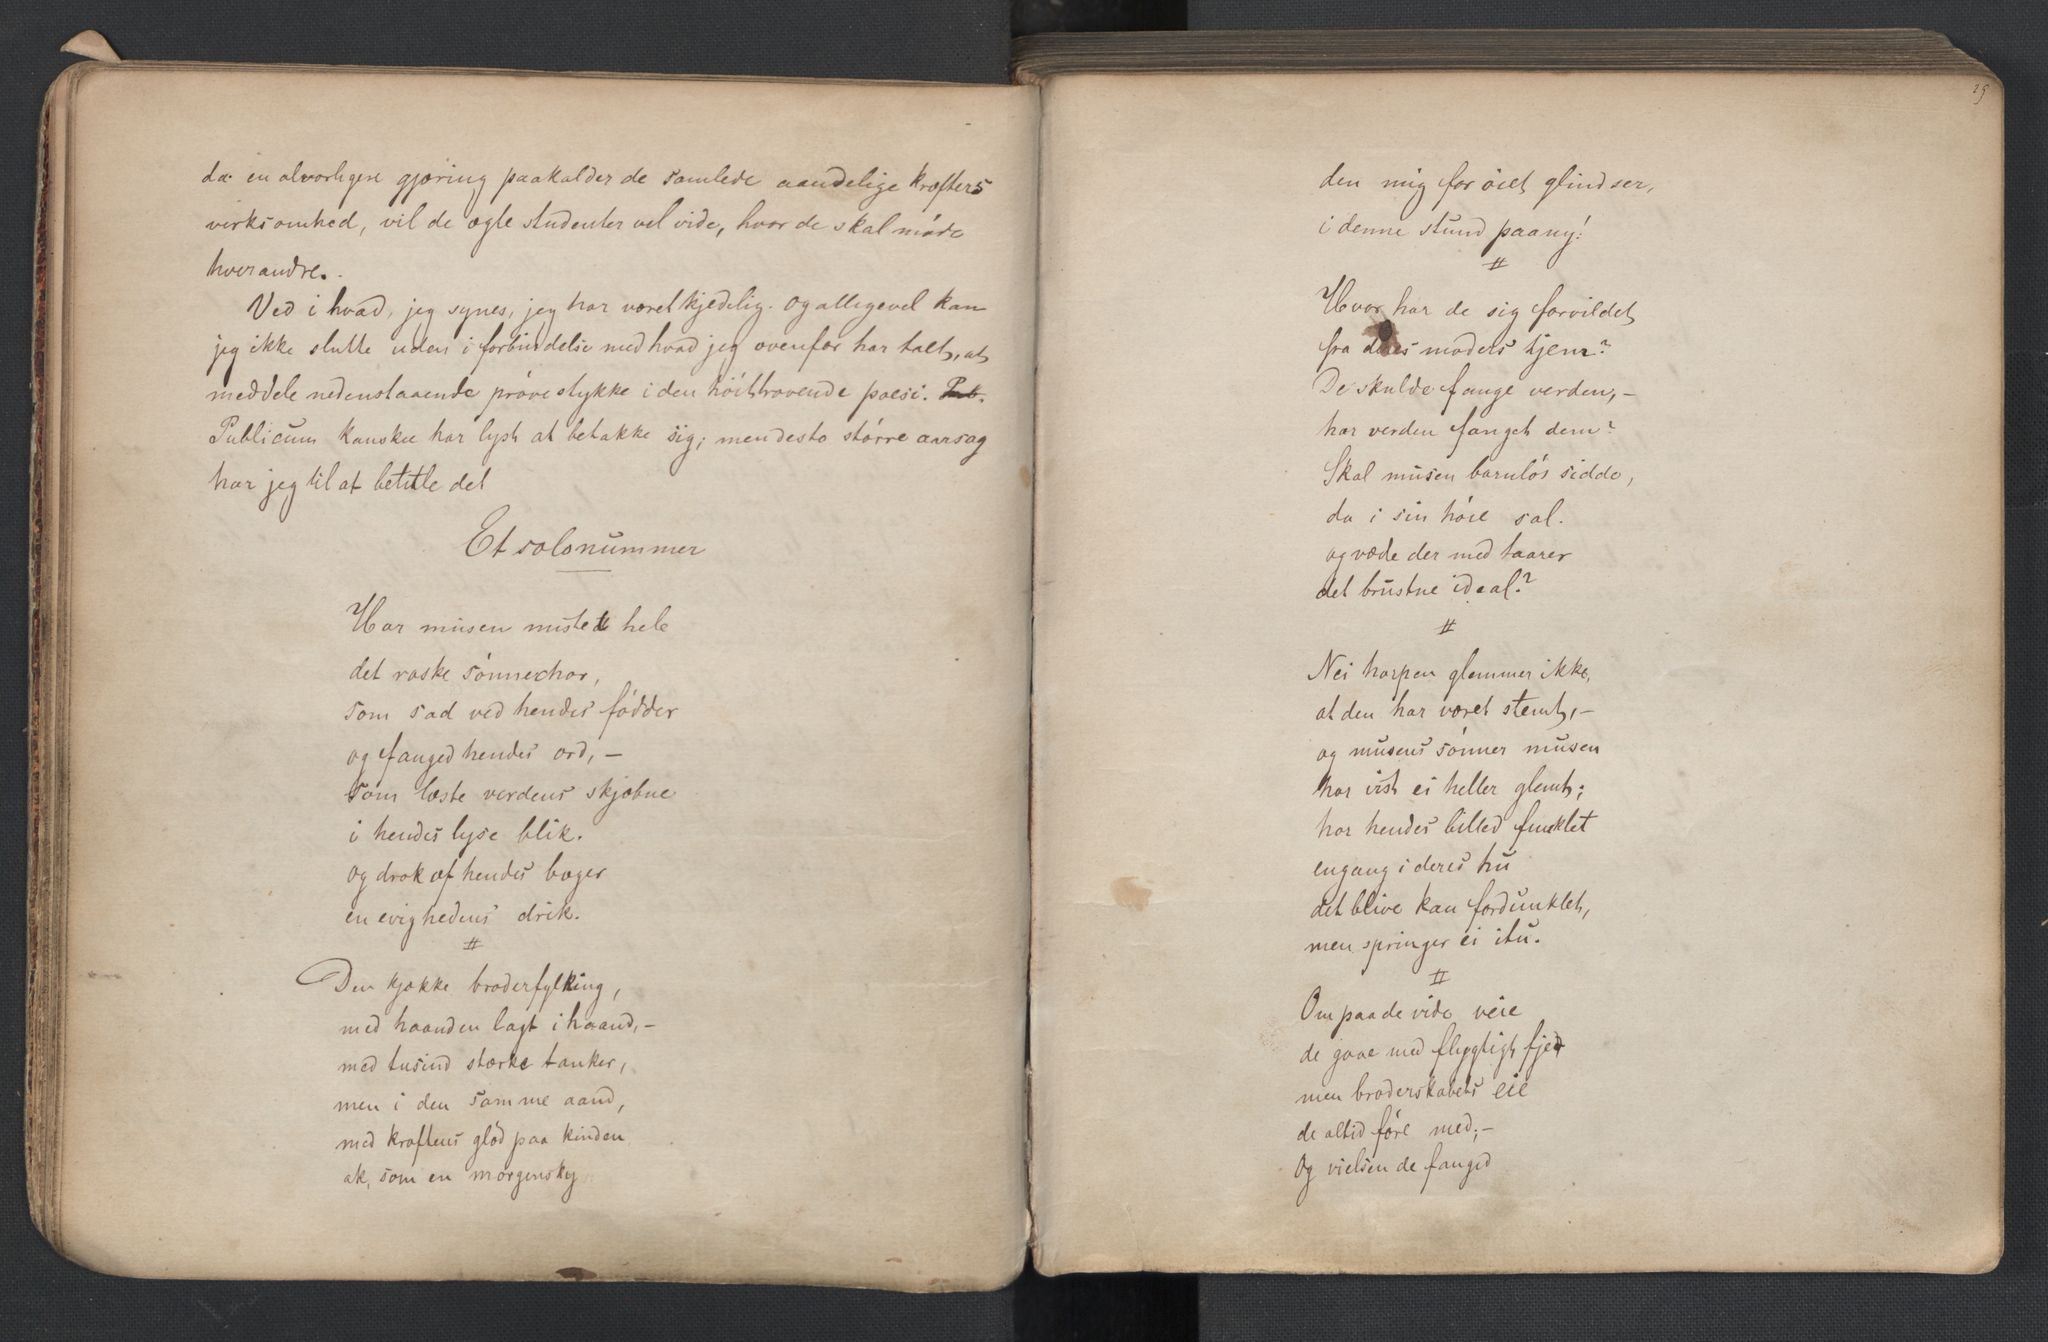 da en alvorligere gjæring paakalder de samlede aandelige kræfters
virksomhed, vil de ægte studenter vel vide, hvor de skal møde
hverandre.
Ved i hvad, jeg synes, jeg har været kjedelig. og alligevel kan
jeg ikke slutte uden i forbindelse med hvad jeg ovenfor har talt, at
meddele nedenstaaende prøvestykke i den høittravende poesi. Pub.
Publicum kanskee har lyst at betakke sig; men desto större aarsag
har jeg til at betitle det
Et solonummer
Har musen mistet hele
det raske sønnechor,
som sad ved hendes fødder
og fanged hendes ord, –
som læste verdens skjæbne
i hendes lyse blik.
og drak af hendes bæger
en evighedens drik.
#
Den kjække broderfylking,
med haanden lagt i haand, –
med tusind stærke tanker,
men i den samme aand,
med kraftens glød paa kinden
ak, som en morgensky
29
den mig for öiet glindser,
i denne stund paany!
#
Hvor har de sig forvildet
fra deres moders hjem?
De skulde fange verden, –
har verden fanget dem?
Skal musen barnløs sidde,
da i sin høie sal.
og væde der med taarer
det brustne ideal?
#
Nei harpen glemmer ikke,
at den har været stemt, –
og musens sønner musen
har vist ei heller glemt;
har hendes billed funklet
engang i deres hu
det blive kan fordunklet,
men springer ei itu.
#
Om paa de vide veie
de gaae med flygtigt fjed
men broderskabets eie
de altid føre med; –
Og vielsen de fanged